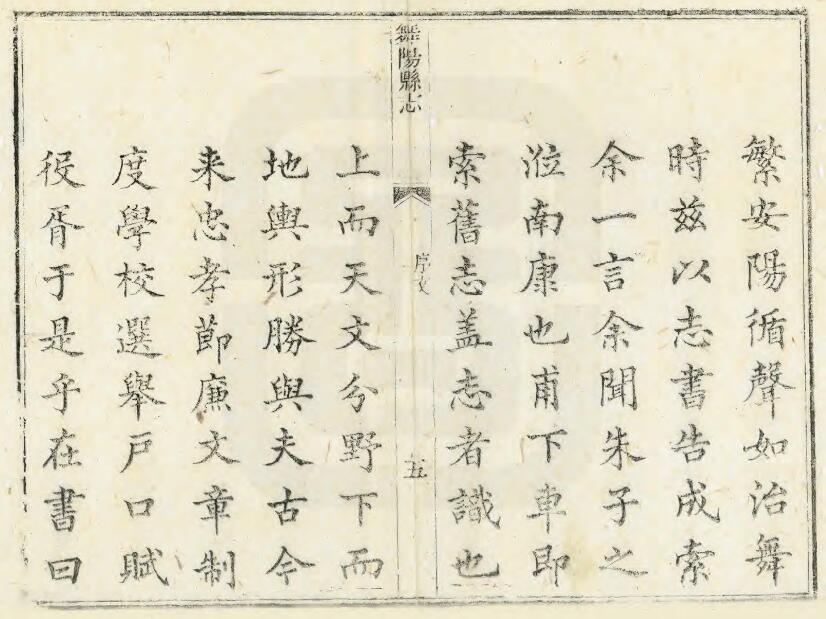 繁安陽循聲如治舞
時兹以志書告成索
余一言余聞朱子之
涖南康也甫下車即
索舊志盖志者識也
舞陽縣志
序文
五
上而天文分野下而
地輿形勝與夫古今
来忠孝節廉文章制
度學校選舉户口賦
役胥于是乎在書曰